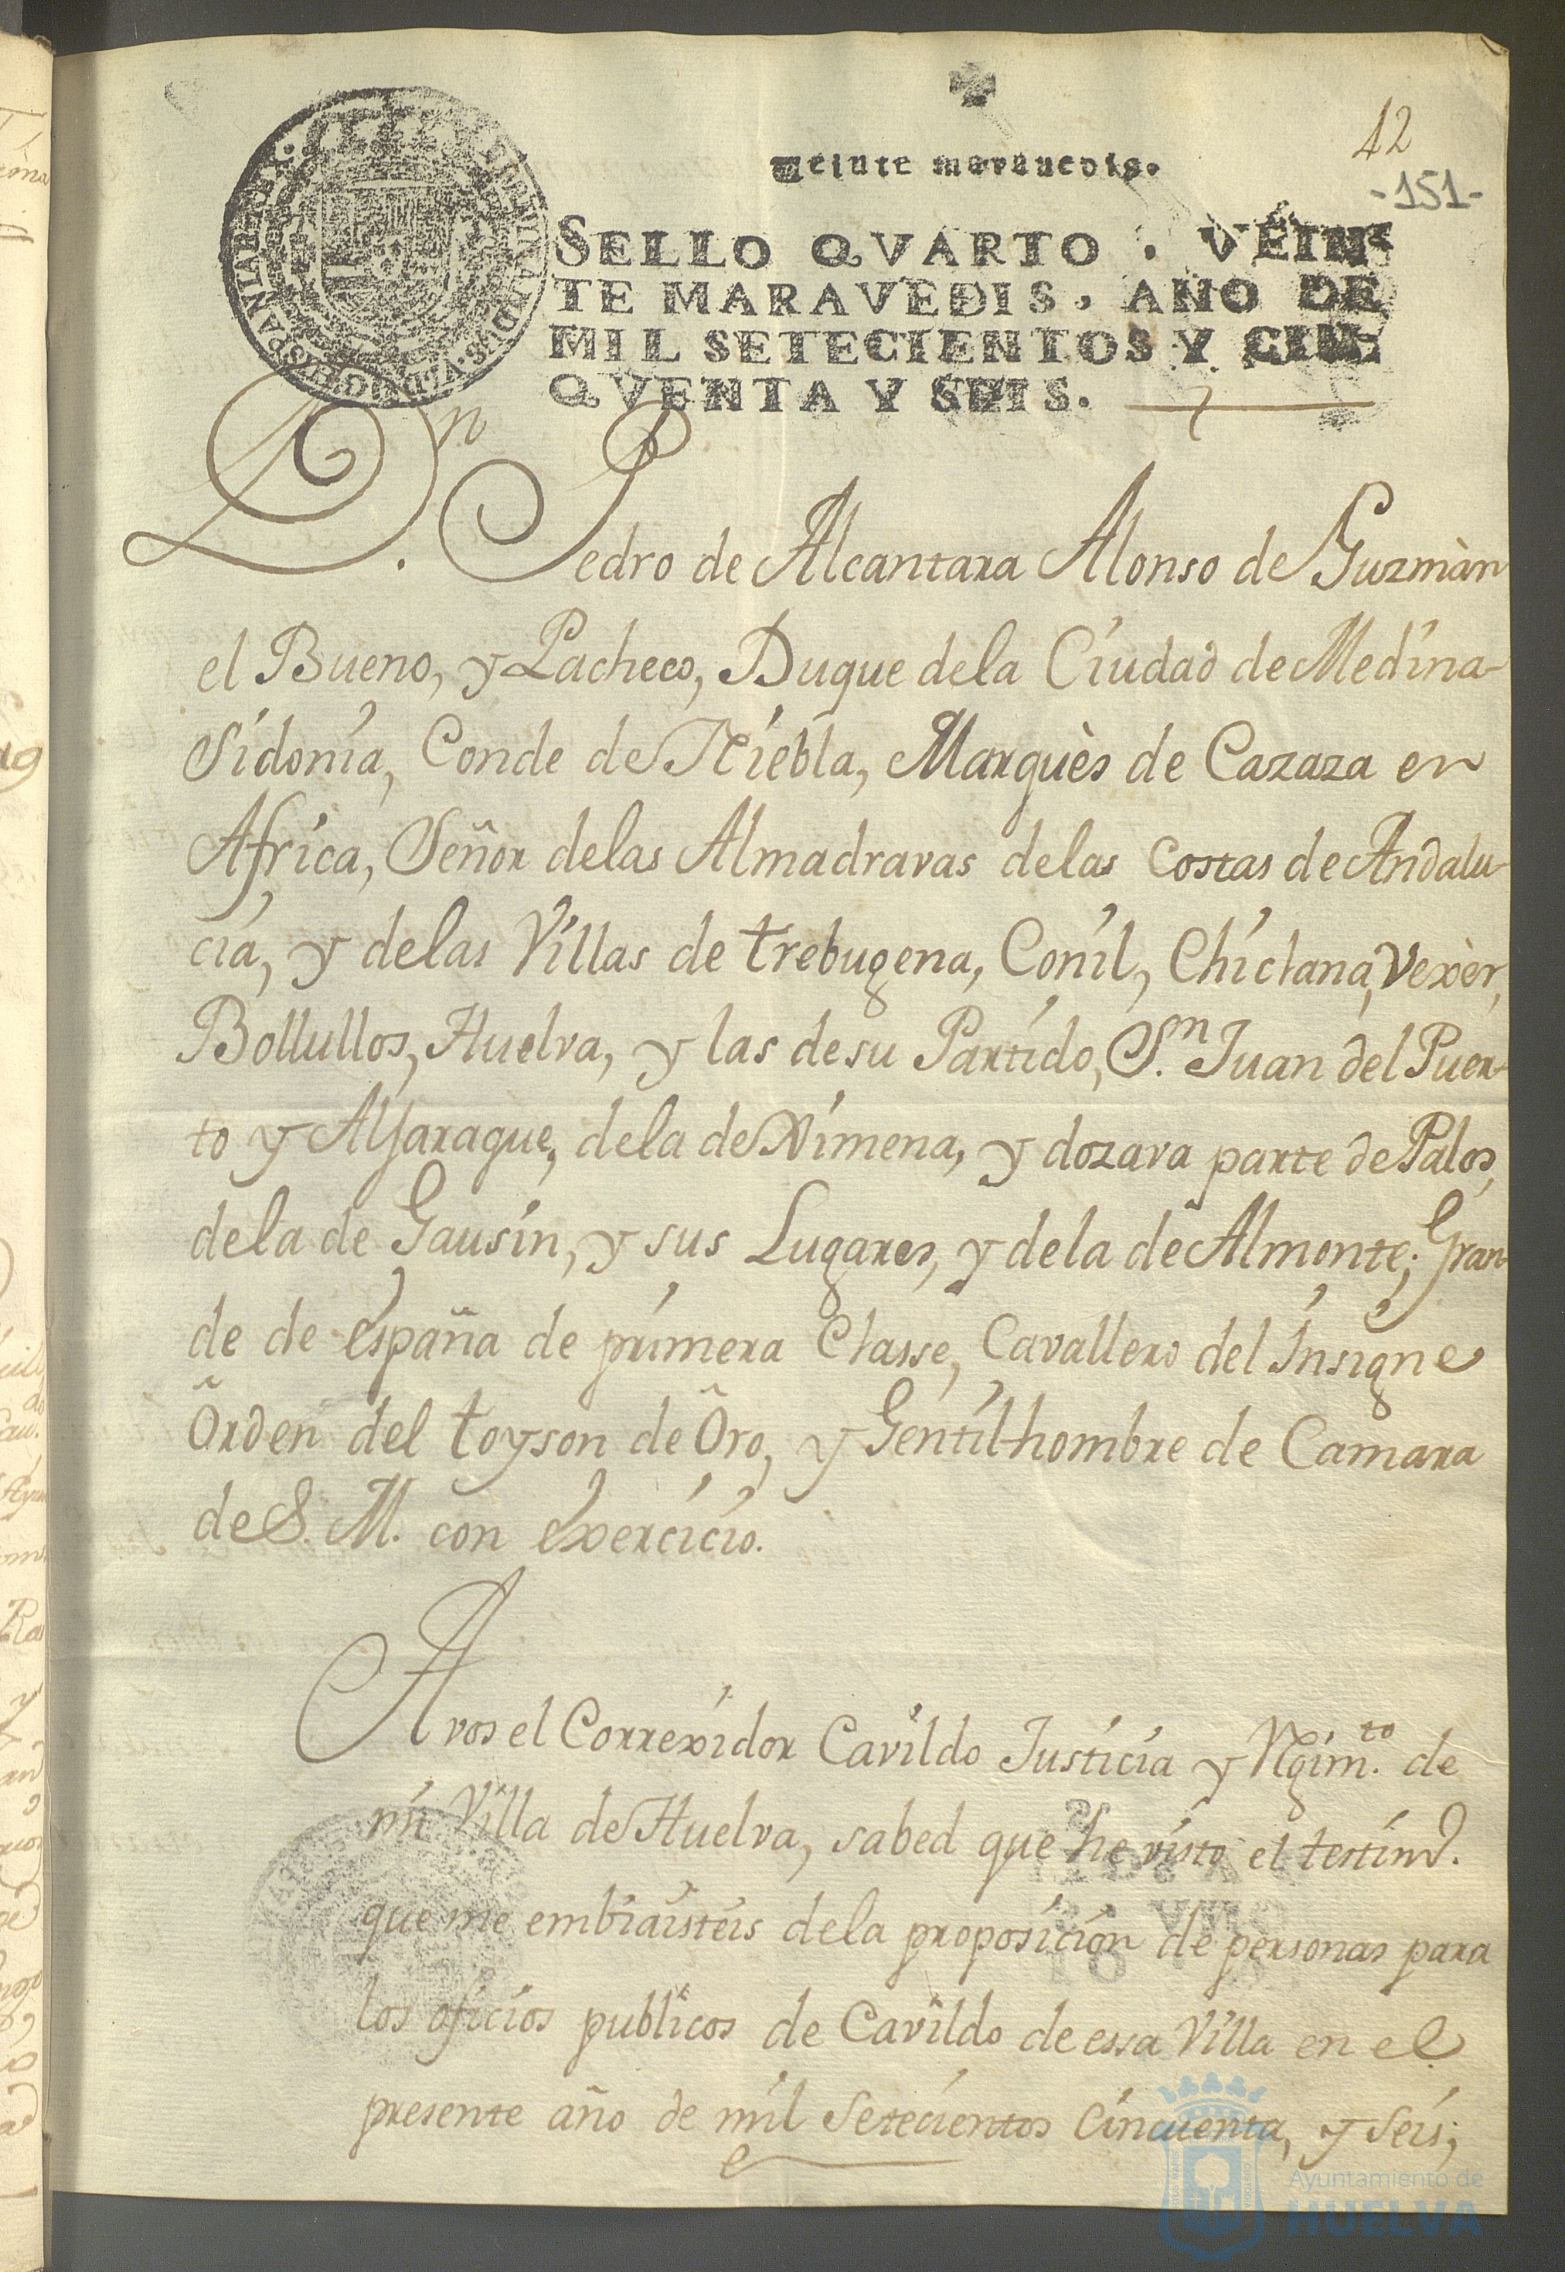 42
-151-
Veinte maravedis.
SELLO QVARTO . VEIN-
TE MARAVEDIS, AÑO DE
MIL SETECIENTOS Y CIN-
QVENTA Y SEIS.
Dn. Pedro de Alcantara Alonso de Guzmàn
el Bueno, y Pacheco, Duque dela Ciudad de Medina-
Sidonia, Conde de Niebla, Marquès de Cazaza en
Africa, Señor delas Almadravas delas costas de Andalu-
cia, y delas Villas de trebugena, Conil, Chiclana, Vexèr,
Bollullos, Huelva, y las de su Partido, Sn. Juan del Puer-
to y Aljaraque, dela de Ximena, y dozava parte de Palos,
dela de Gausin, y sus Lugares, y dela de Almonte; Gran-
de de España de primera Classe, Cavallero del Insigne
Orden del toyson de Oro, y Gentil-hombre de Camara
de S. M. con exercicio.
A vos el Correxidor Cavildo Justicia y Rgimto. de
mi Villa de Huelva, sabed que he visto el testimo.
que me embiaisteis dela proposicion de personas para
los oficios publicos de Cavildo de essa Villa en el
presente año de mil Setecientos Cincuenta, y Seis;
Ayuntamiento de
HUELVA